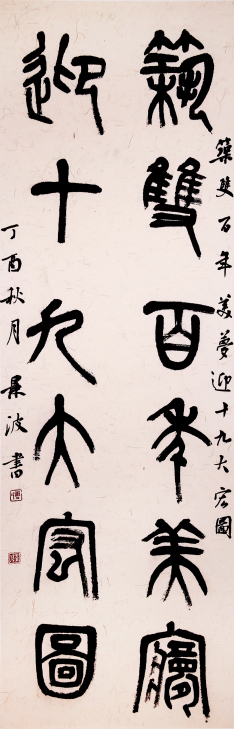 築雙百年美夢
迎十九大宏圖
築雙百年美夢迎十九大宏圖
丁酉秋月景波書